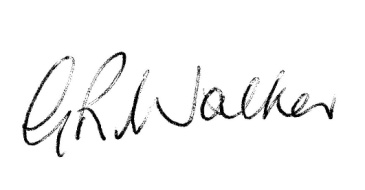 G.R. Walker